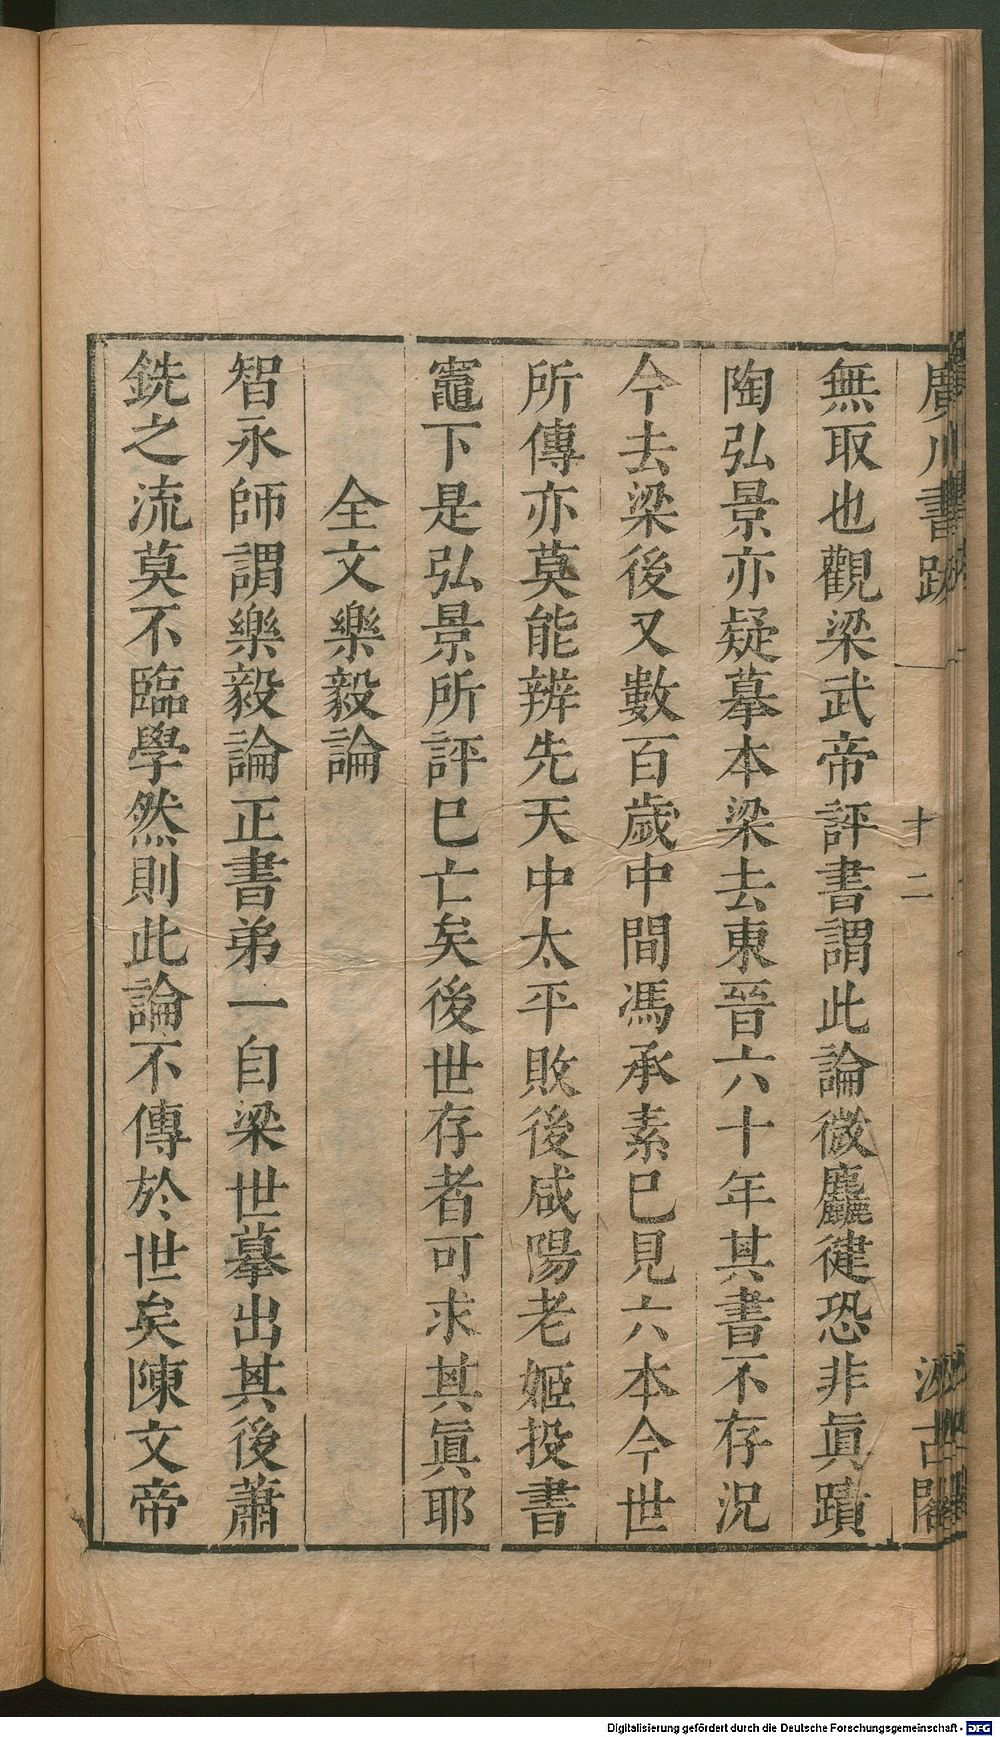 廣川書跋
十二
汲古閣
無取也觀梁武帝評書謂此論微麤健恐非眞蹟
陶弘景亦疑摹本梁去東晉六十年其書不存況
今去梁後又數百歲中間馮承素巳見六本今世
所傳亦莫能辨先天中太平敗後咸陽老姬投書
竈下是弘景所評巳亡矣後世存者可求其眞耶
全文樂毅論
智永師謂樂毅論正書弟一自梁世摹出其後蕭
銑之流莫不臨學然則此論不傳於世矣陳文帝
Digitalisierung gefördert durch die Deutsche Forschungsgemeinschaft - DFG